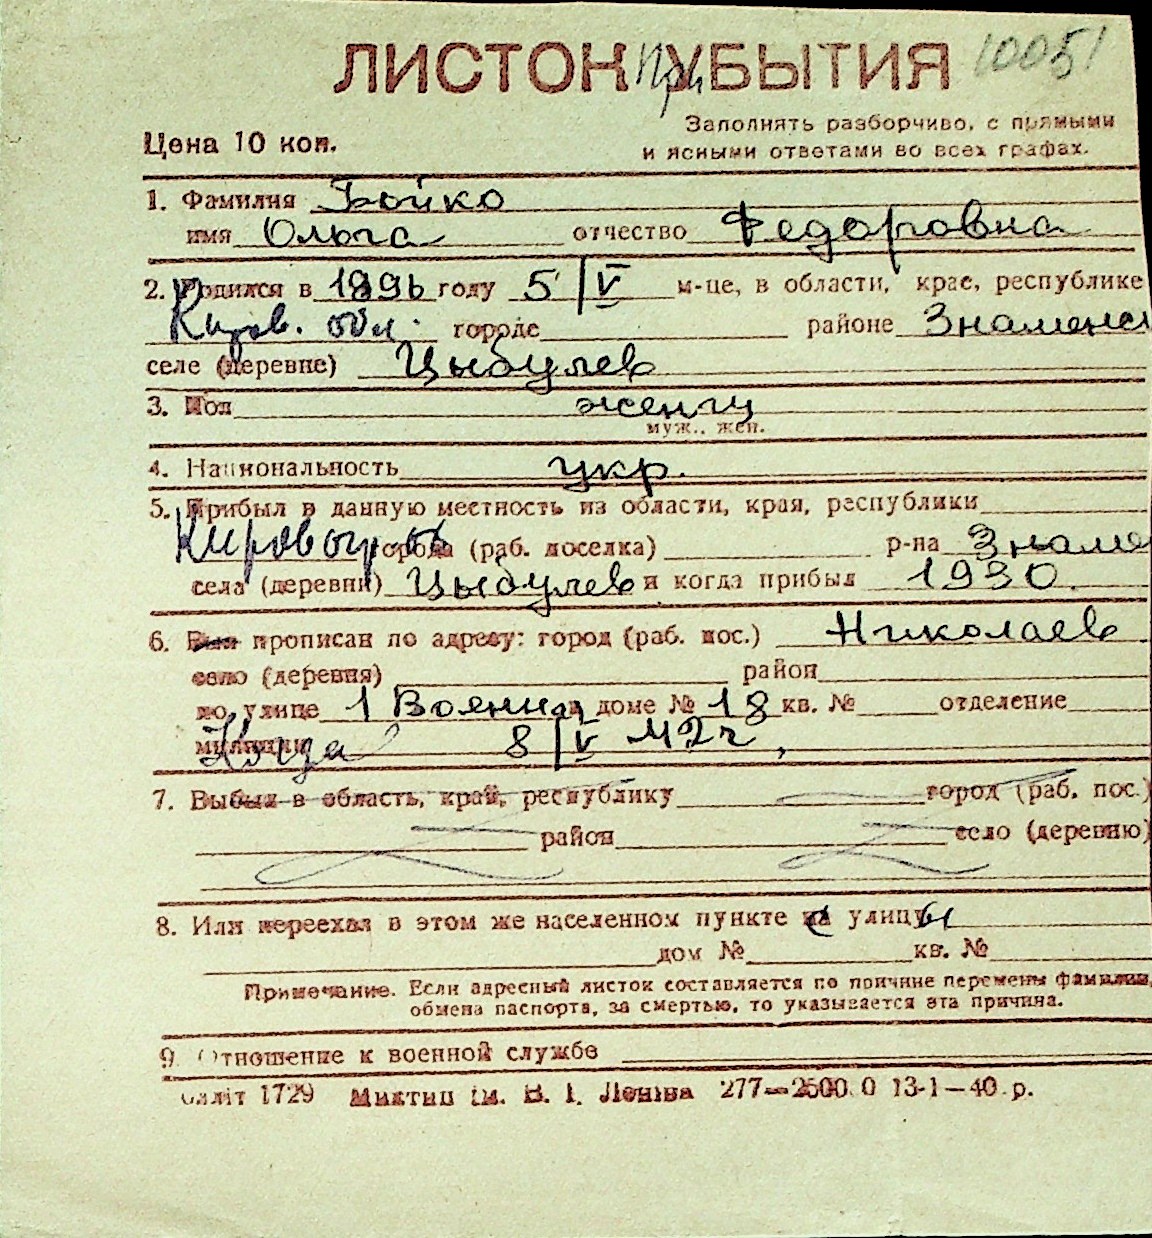 ЛИСТОК При УБЫТИЯ 10051
Заполнять разборчиво, с прямыми
Цена 10 коп.
и ясными ответами во всех графах.
1. Фамилия Бойко
имя Ольга отчество Федоровна
2. Родился в 1896 году 5/V м-це, в области, крае, республике
Киров. обл. городе районе Знаменс
селе (деревне) Цыбулев
3. Пол женщ
муж., жен.
4. Национальность укр.
5. Прибыл в данную местность из области, края, республики
Кировогр. об города (раб. поселка) р-на Знаме
села (деревни) Цыбулев и когда прибыл 1930
6. Был прописан по адресу: город (раб. пос.) Николаев
село (деревня) район
по улице 1 Военная в доме № 18 кв. № отделение
милиции Когда 8/V 42 г,
7. Выбыл в область, край, республику город (раб. пос.)
район село (деревню)
8. Или переехал в этом же населенном пункте с улицы
дом № кв. №
Примечание. Если адресный листок составляется по причине перемены фамилии,
обмена паспорта, за смертью, то указывается эта причина.
9. Отношение к военной службе
облліт 1729 Миктип ім. В. І. Леніна 277—2500.0 13-1—40 р.